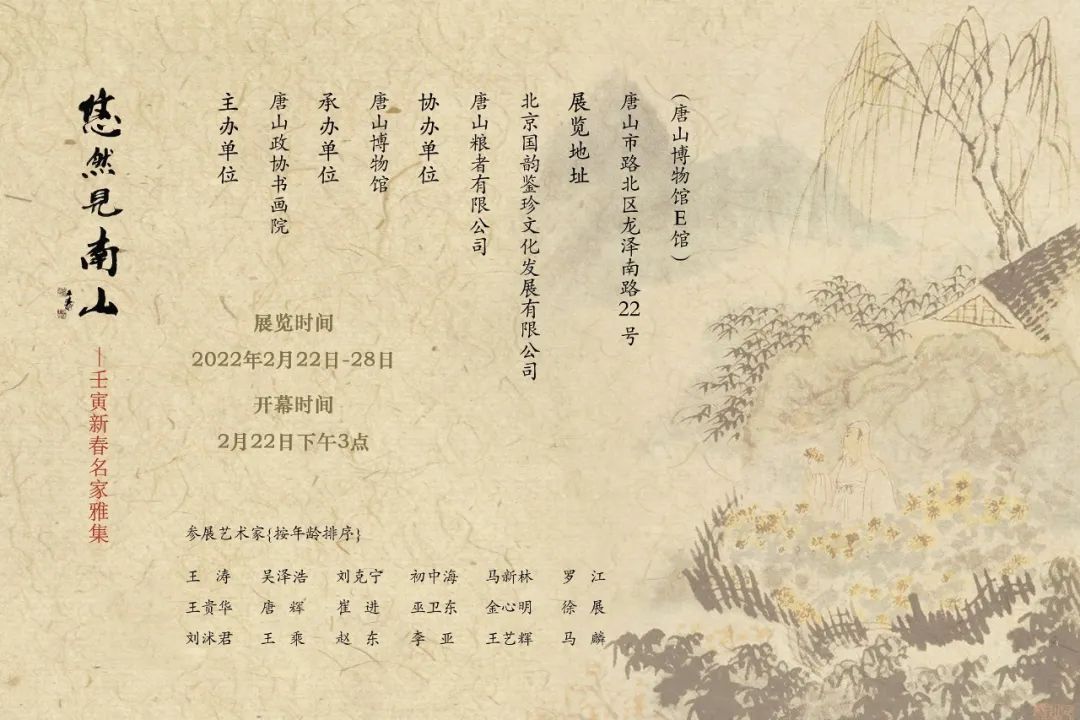 悠然見南山
—壬寅新春名家雅集
主办单位
唐山政协书画院
承办单位
唐山博物馆
协办单位
唐山粮者有限公司
北京国韵鉴珍文化发展有限公司
展览地址
唐山市路北区龙泽南路22号
(唐山博物馆E馆)
展览时间
2022年2月22日-28日
开幕时间
2月22日下午3点
参展艺术家{按年龄排序}
王 涛 吴泽浩 刘克宁 初中海 马新林 罗 江
王贵华 唐 辉 崔 进 巫卫东 金心明 徐 展
刘沐君 王 乘 赵 东 李 亚 王艺辉 马 麟